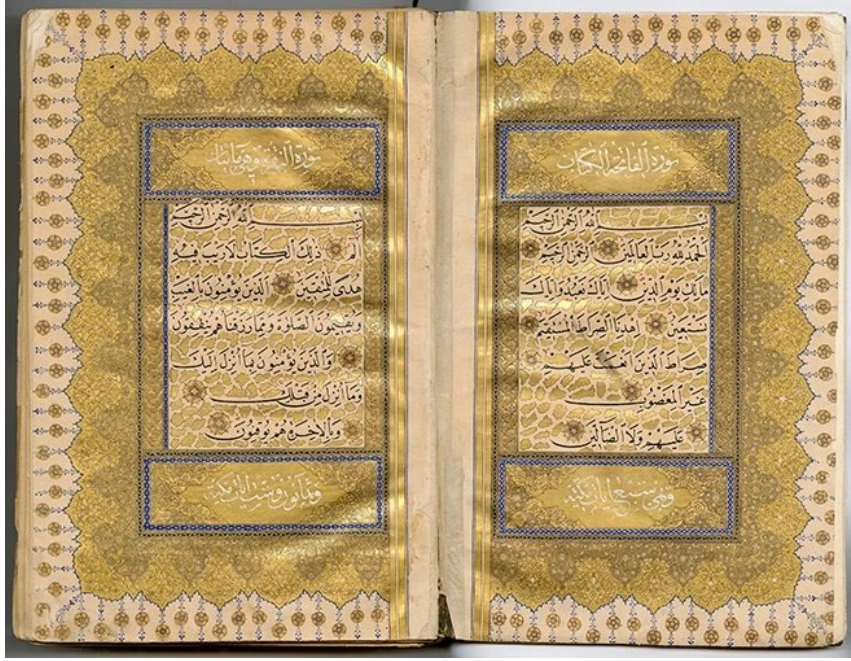 سورة الفاتحة الكتاب
بسم الله الرحمن الرحيم
الحمد لله رب العالمين الرحمن الرحيم
مالك يوم الدين اياك نعبد واياك
نستعين اهدنا الصراط المستقيم
صراط الذين انعمت عليهم
غير المغضوب
عليهم ولا الضالين
وهي سبع ايات مكية
سورة البقرة وهي مائتان
بسم الله الرحمن الرحيم
الم ذلك الكتاب لا ريب فيه
هدى للمتقين الذين يؤمنون بالغيب
ويقيمون الصلوة ومما رزقناهم ينفقون
والذين يؤمنون بما انزل اليك
وما انزل من قبلك
وبالاخرة هم يوقنون
وثمانون وست ايات مكية